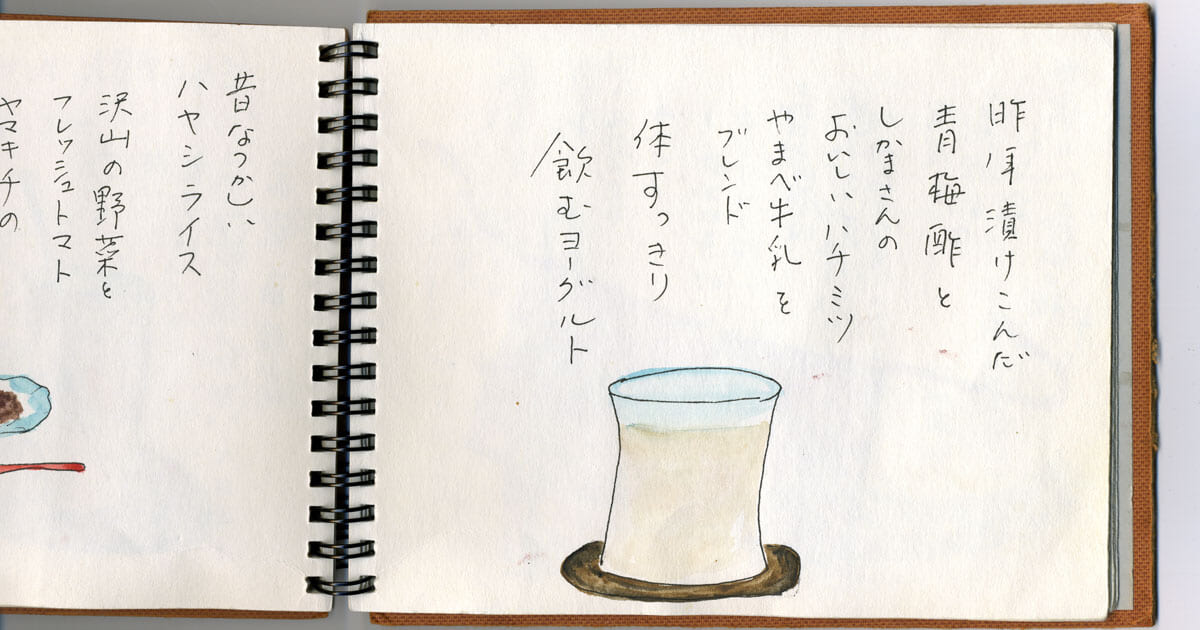 昨年漬けこんだ
青梅酢と
しかまさんの
おいしいハチミツ
やまべ牛乳を
ブレンド
体すっきり
飲むヨーグルト
昔なつかしい
ハヤシライス
沢山の野菜と
フレッシュトマト
ヤマキチの